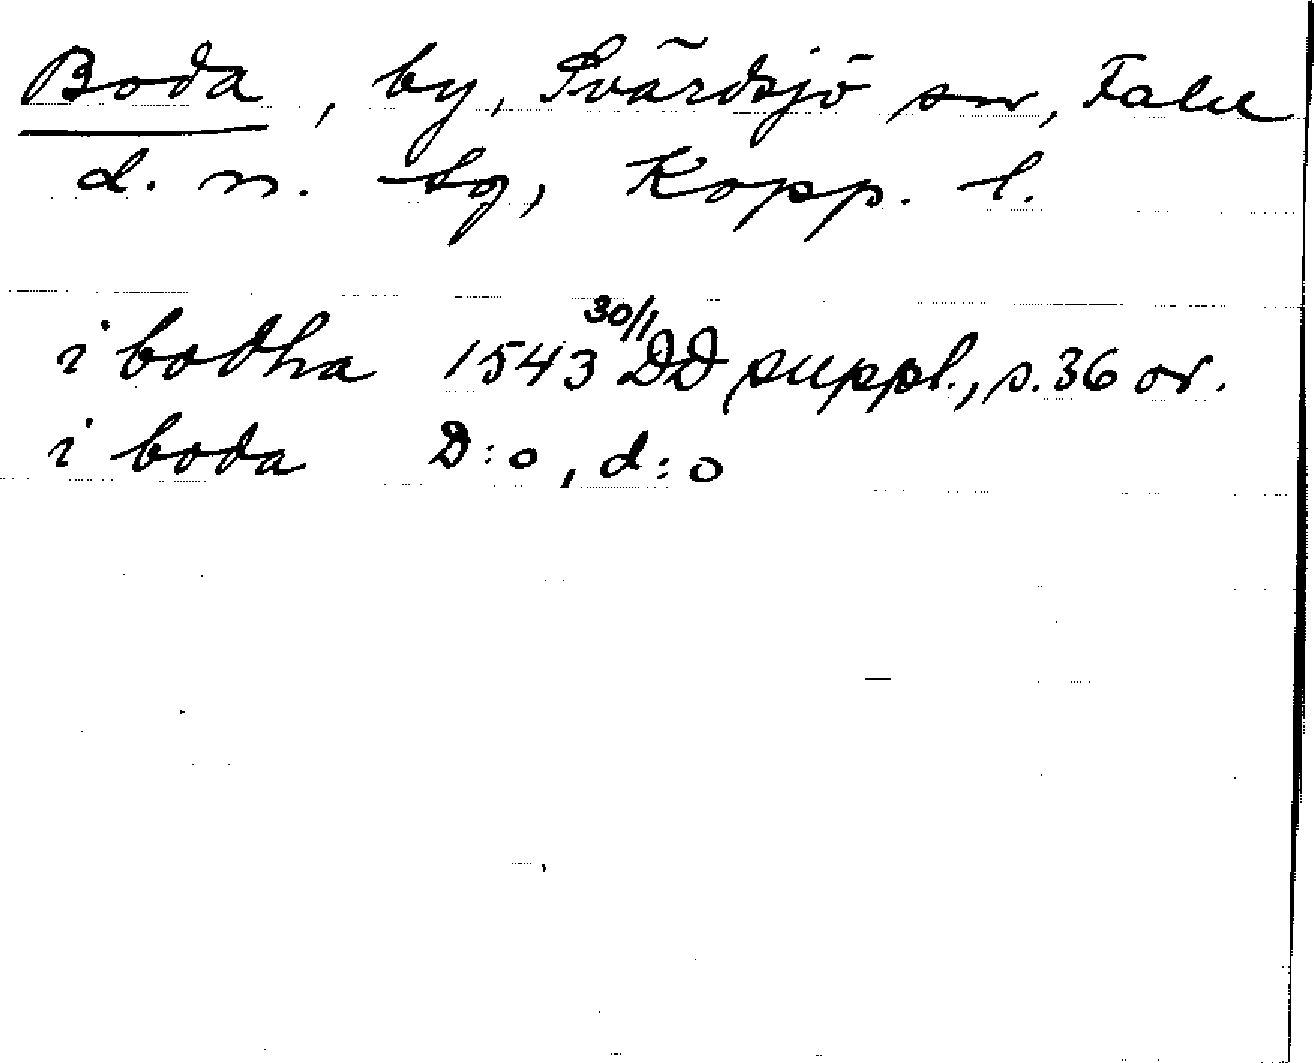 Boda, by, Svärdsjö sn, Falu
d. n. tg, Kopp. l.
i bodha 1543 30/1 DD suppl., s. 36 or.
i boda D:o, d:o